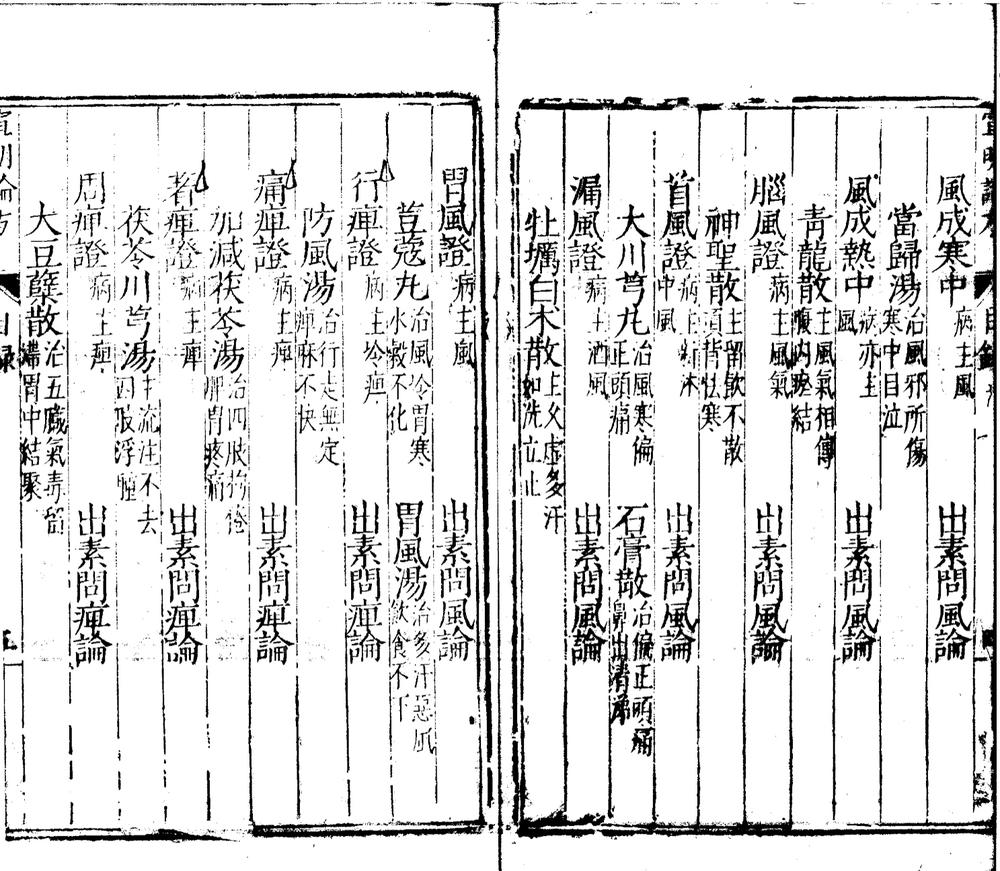 風成寒中 病主風 出素問風論
當歸湯 治風邪所傷寒中目泣
風成熱中 病亦主風 出素問風論
青龍散 主風氣相傳腹內瘀結
腦風證 病主風氣 出素問風論
神聖散 主留飲不散項背怯寒
首風證 病主新沐中風 出素問風論
大川芎丸 治風寒偏正頭痛 石膏散 治偏正頭痛鼻出清涕
漏風證 病主酒風 出素問風論
牡蠣白术散 主久虛多汗如洗立止
宣明論方 目錄 五
胃風證 病主風 出素問風論
荳蔻丸 治風冷胃寒水穀不化 胃風湯 治多汗惡風飲食不下
行痺證 病主冷痺 出素問痺論
防風湯 治行走無定痺麻不快
痛痺證 病主痺 出素問痺論
加減茯苓湯 治四肢拘倦脾胃疼痛
着痺證 病主痺 出素問痺論
茯苓川芎湯 主流注不去四肢浮腫
周痺證 病主痺 出素問痺論
大豆蘖散 治五臟氣毒留滯胃中結聚